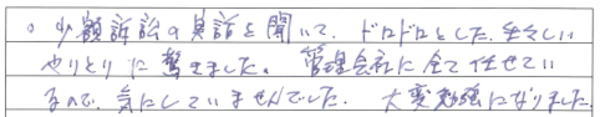 ○ 少額訴訟の実話を聞いて、ドロドロとした、生々しい
やりとりに驚きました。管理会社に全て任せてい
るので、気にしていませんでした。大変勉強になりました。